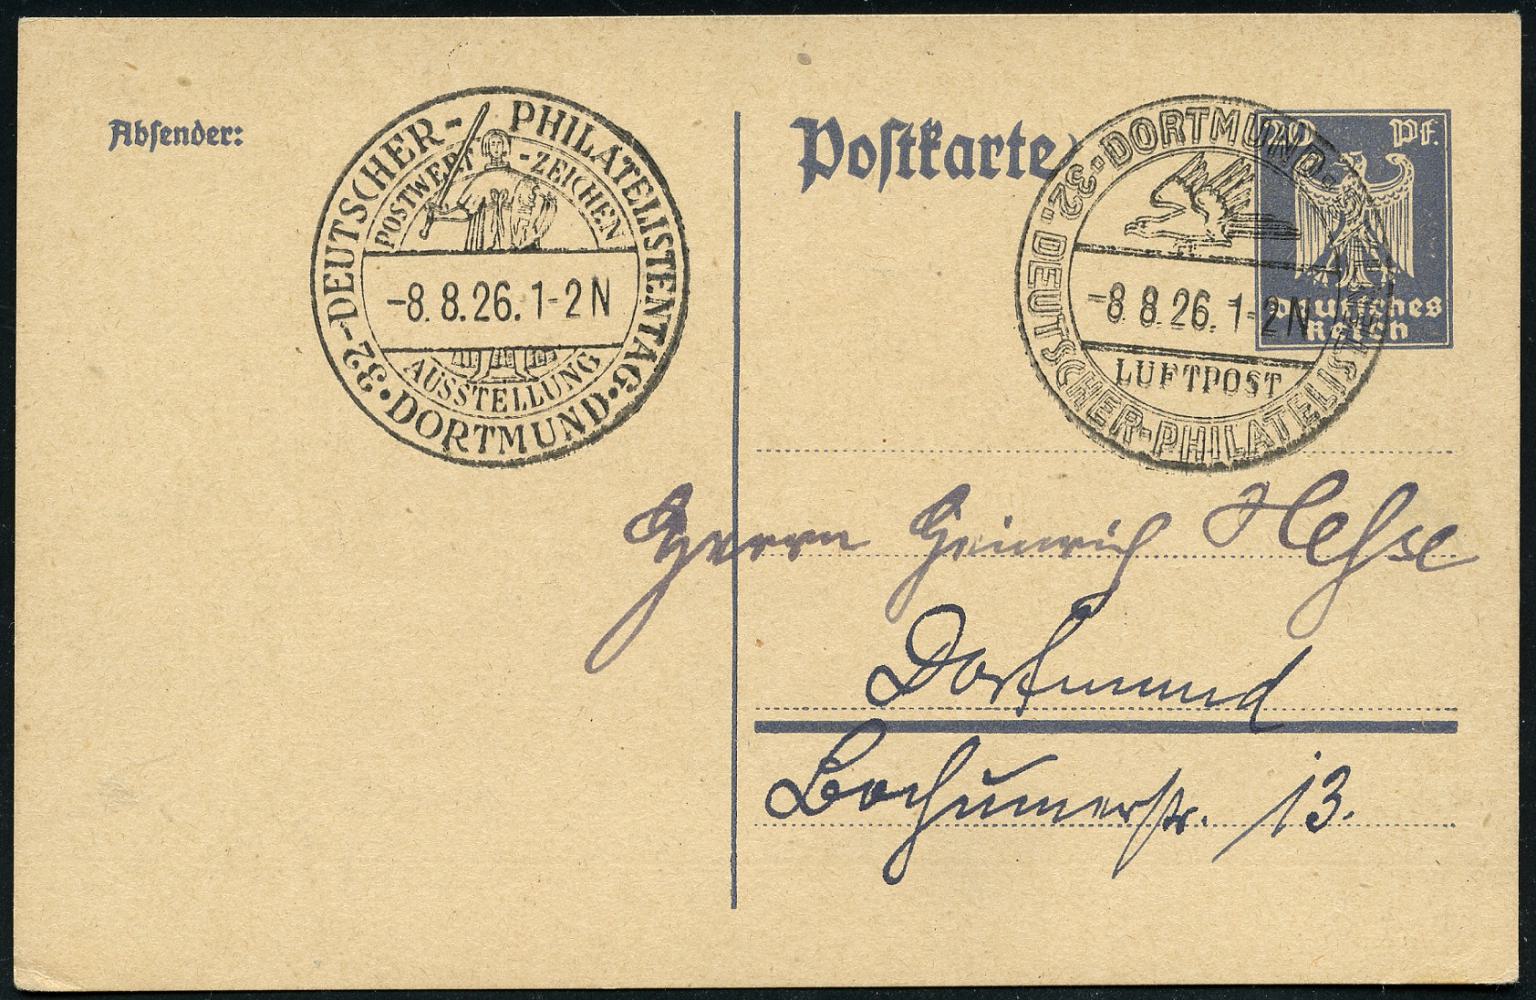 Absender:
Postkarte
32. DEUTSCHER-PHILATELISTENTAG
POSTWERT-ZEICHEN
-8.8.26.1-2N
AUSSTELLUNG
• DORTMUND •
20 Pf.
Deutsches
Reich
•DORTMUND•
32. DEUTSCHER-PHILATELISTENTAG
-8.8.26.1-2N
LUFTPOST
Herrn Heinrich Hesse
Dortmund
Bochumerstr. 13.